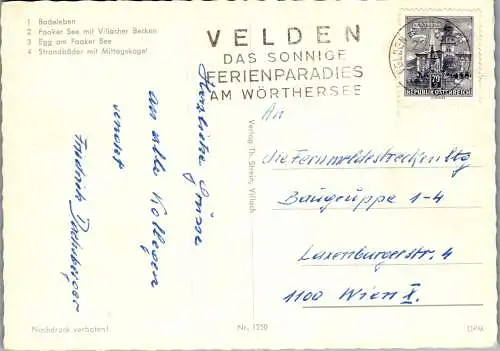 1 Badeleben
2 Faaker See mit Villacher Becken
3 Egg am Faaker See
4 Strandbäder mit Mittagskogel
VELDEN
DAS SONNIGE
FERIENPARADIES
AM WÖRTHERSEE
REPUBLIK ÖSTERREICH
Herzliche Grüsse
an alle Kollegen
sendet
Friedrich
Verlag Th. Strein, Villach
An
die Fernmeldestreckenltg
Baugruppe 1-4
Laxenburgerstr. 4
1100 Wien X.
Nachdruck verboten!
Nr. 1250